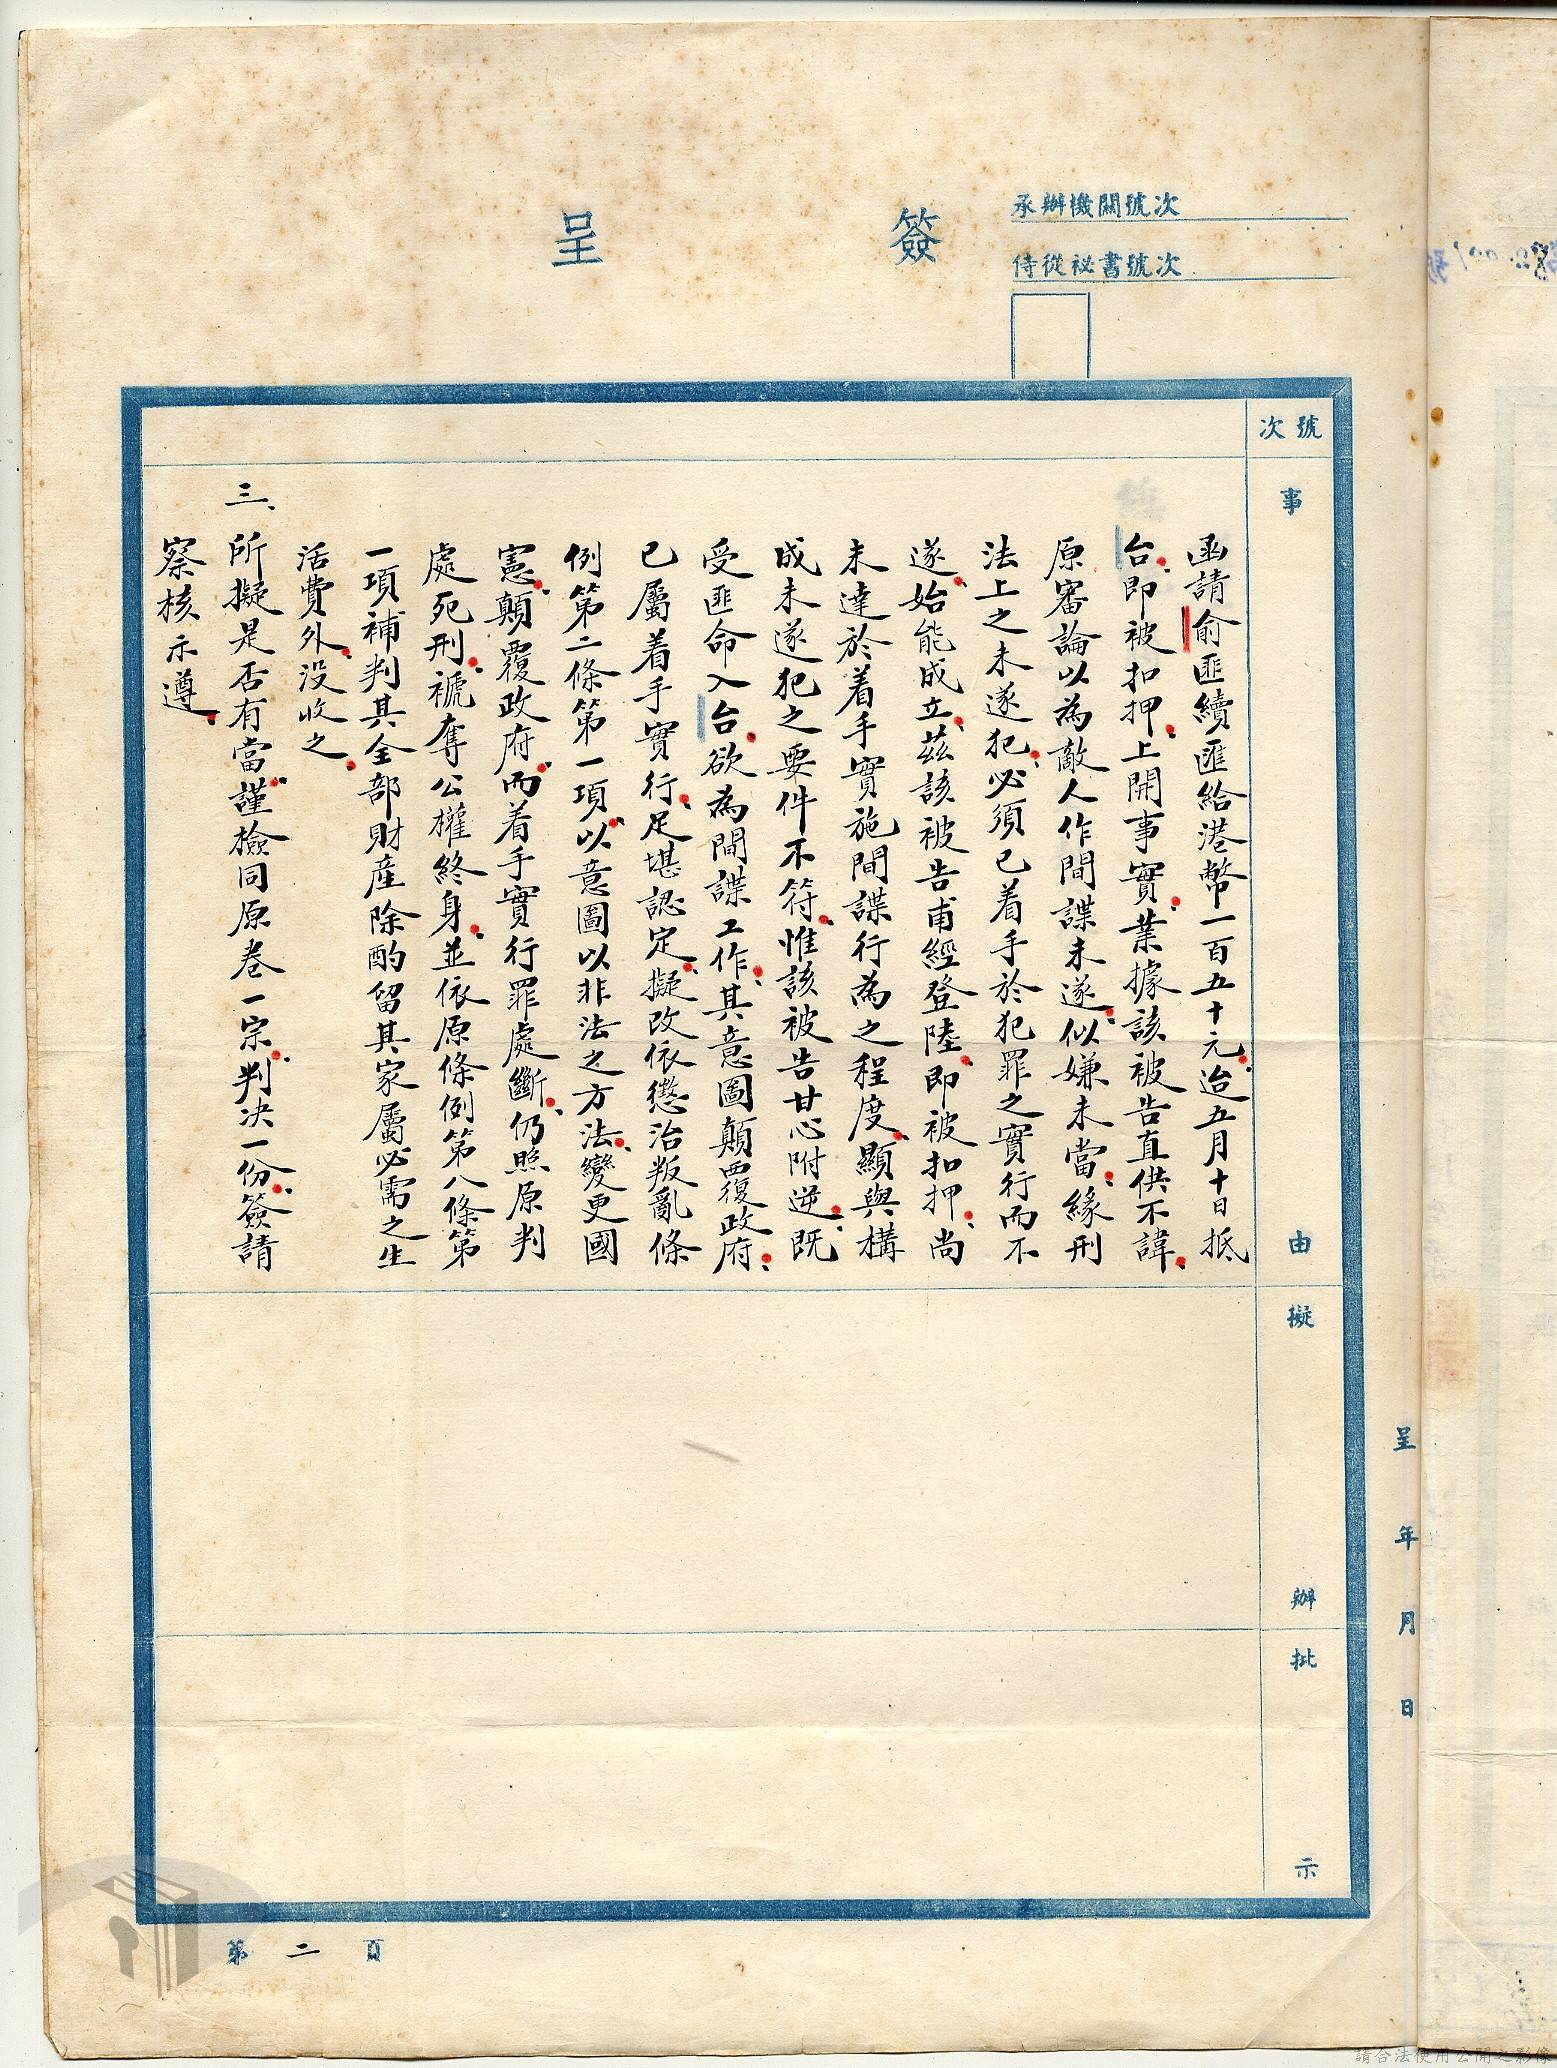 簽呈
承辦機關號次
侍從祕書號次
號次
事由
擬辦
批示
函請俞匪續匯給港幣一百五十元、迨五月十日抵
台、即被扣押、上開事實、業據該被告直供不諱、
原審論以為敵人作間諜未遂、似嫌未當、緣刑
法上之未遂犯、必須已着手於犯罪之實行而不
遂、始能成立、茲該被告甫經登陸、即被扣押、尚
未達於着手實施間諜行為之程度、顯與構
成未遂犯之要件不符、惟該被告甘心附逆、既
受匪命入台、欲為間諜工作、其意圖顛覆政府、
已屬着手實行、足堪認定、擬改依懲治叛亂條
例第二條第一項、以意圖以非法之方法、變更國
憲、顛覆政府、而着手實行罪處斷、仍照原判
處死刑、褫奪公權終身、並依原條例第八條第
一項補判其全部財產除酌留其家屬必需之生
活費外、沒收之、
三、所擬是否有當、謹檢同原卷一宗、判決一份、簽請
察核示遵、
呈 年 月 日
第二頁
請合法使用公開之影像